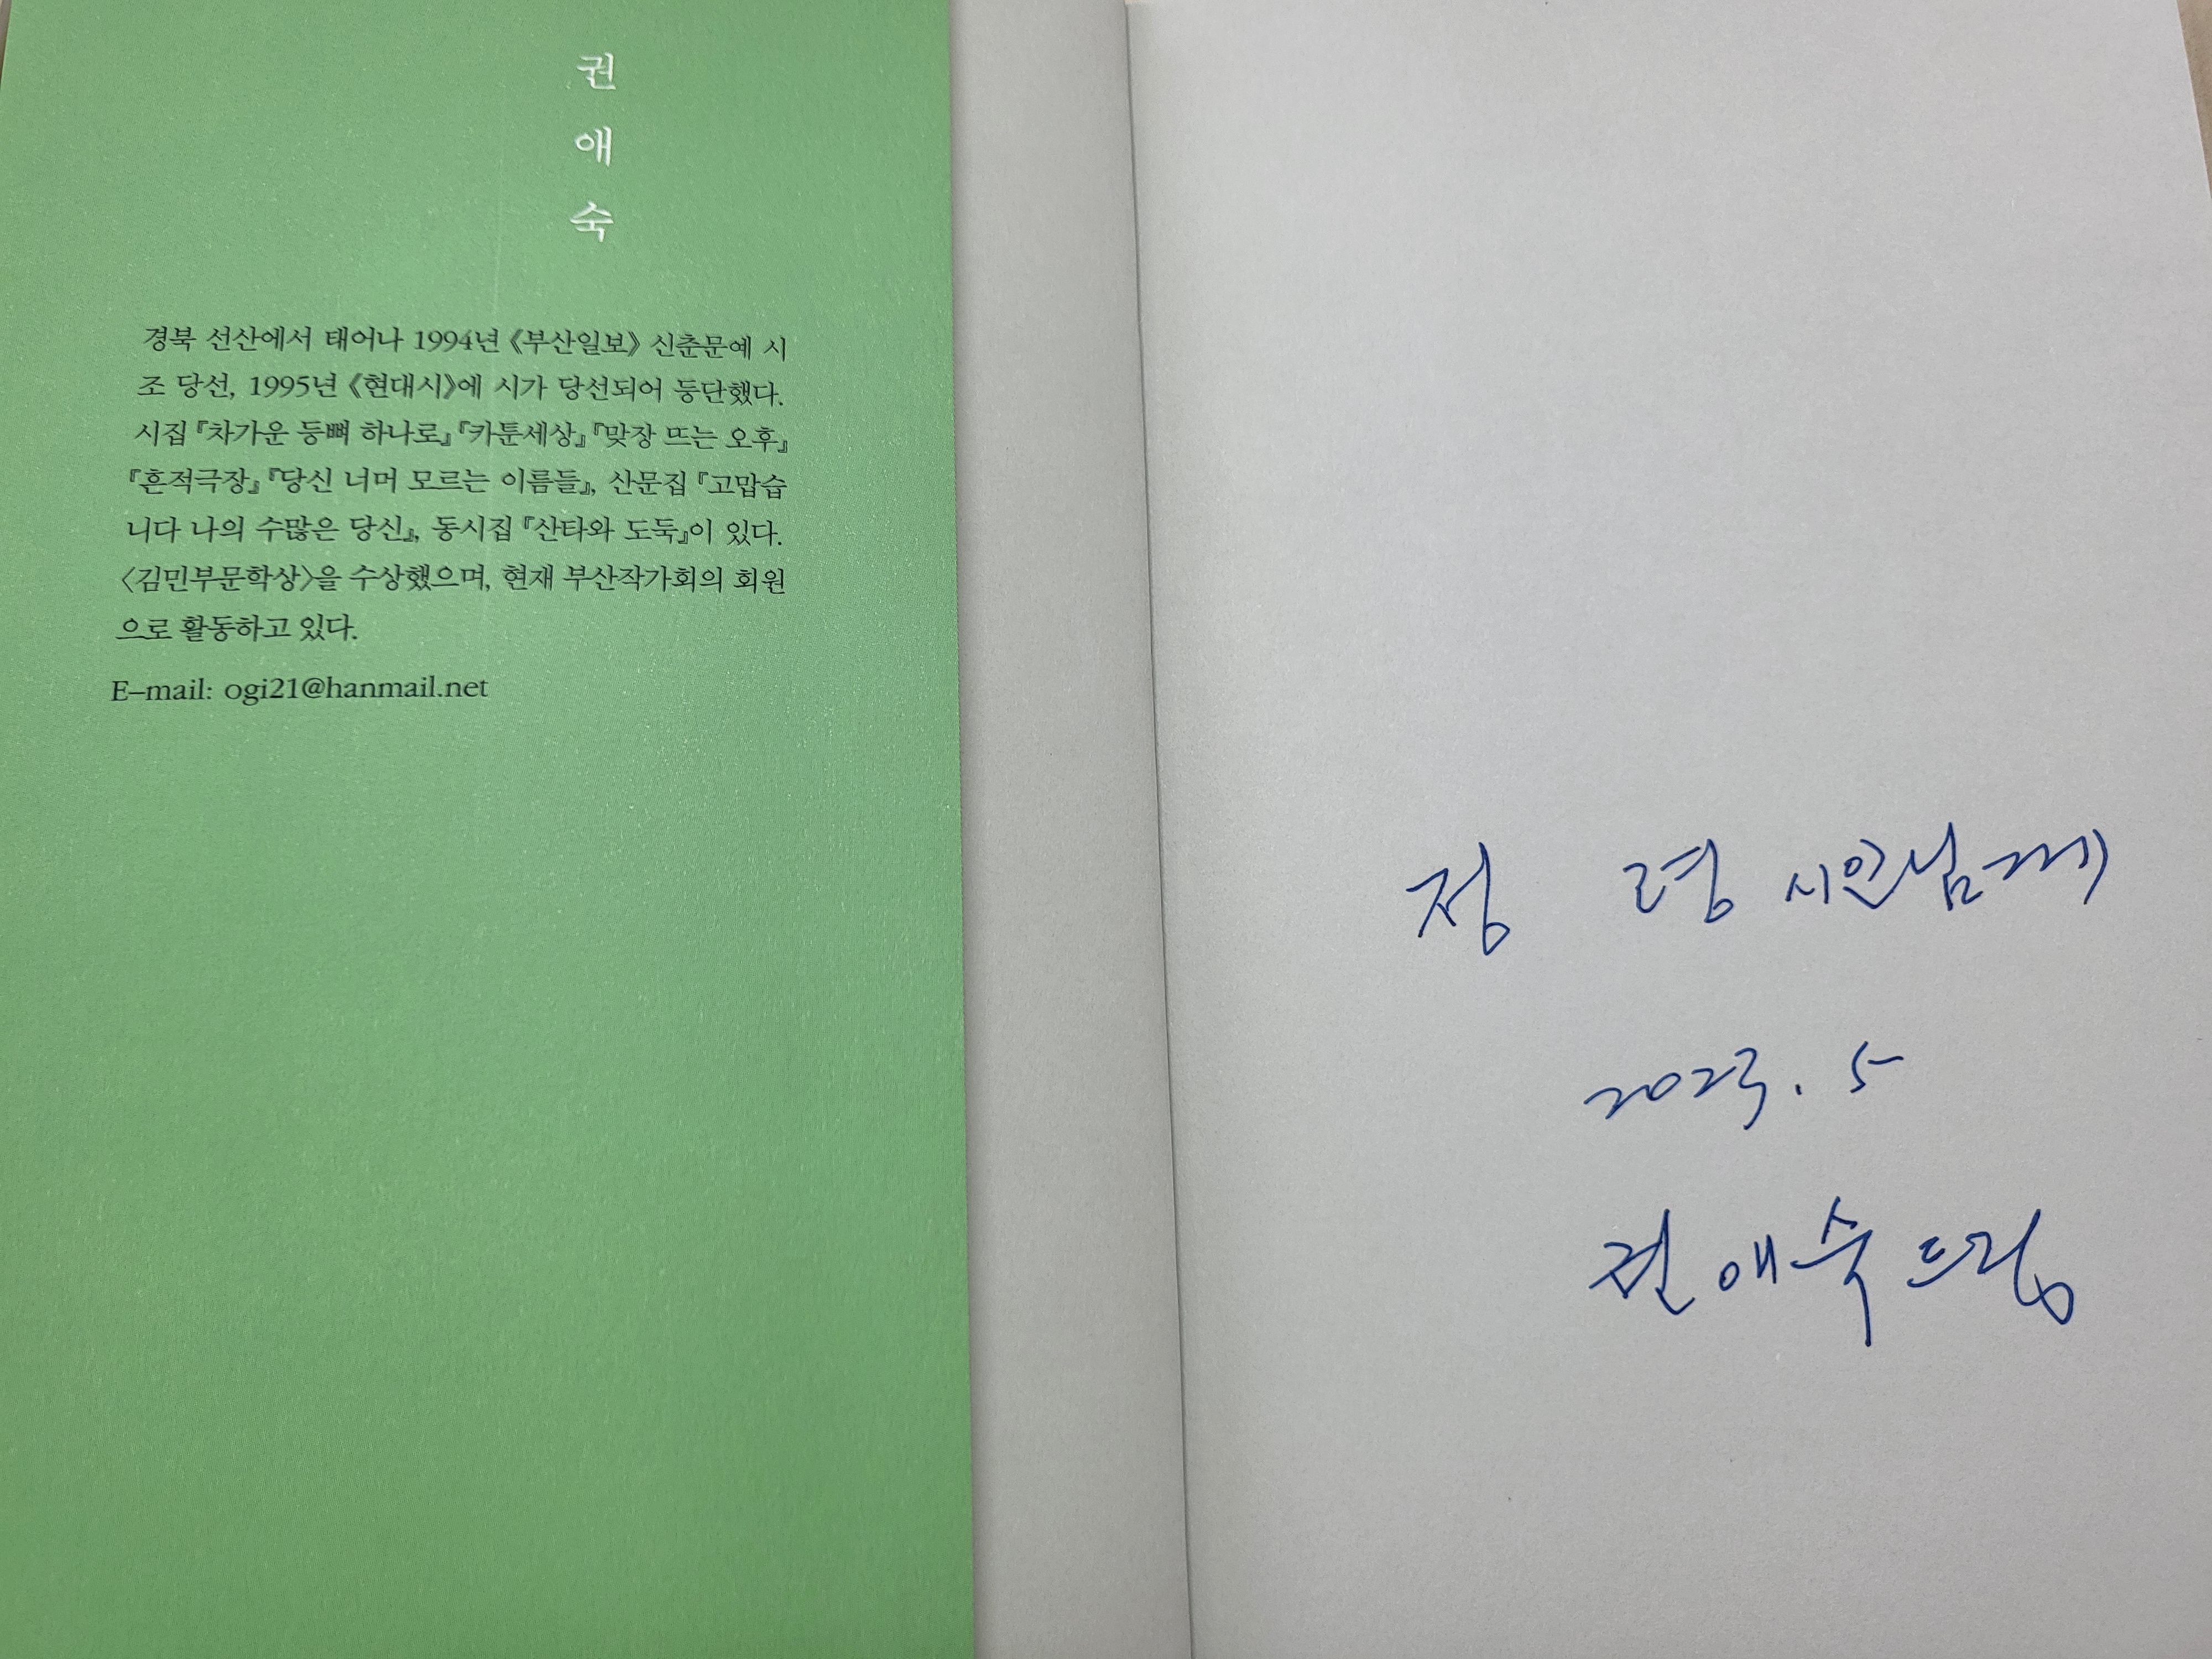 권
애
숙
경북 선산에서 태어나 1994년 《부산일보》 신춘문예 시
조 당선, 1995년 《현대시》에 시가 당선되어 등단했다.
시집 『차가운 등뼈 하나로』 『카툰세상』 『맞장 뜨는 오후』
『흔적극장』 『당신 너머 모르는 이름들』, 산문집 『고맙습
니다 나의 수많은 당신』, 동시집 『산타와 도둑』이 있다.
〈김민부문학상〉을 수상했으며, 현재 부산작가회의 회원
으로 활동하고 있다.
E–mail: ogi21@hanmail.net
정 령 시인님께
2023. 5
권애숙 드림